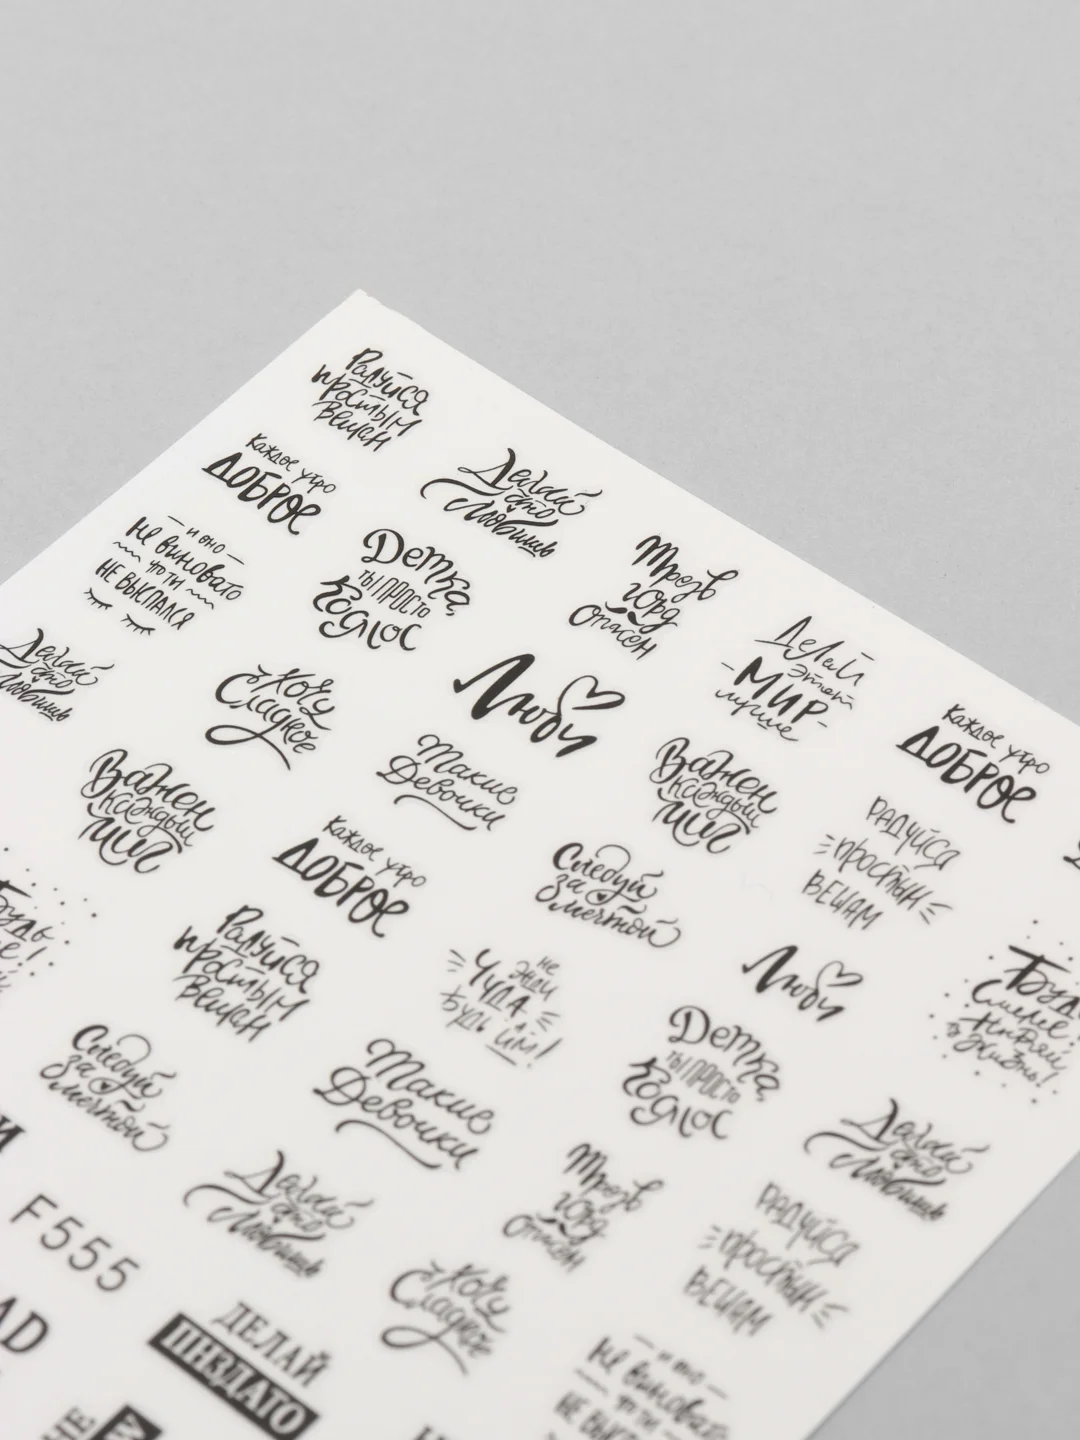 Радуйся
простым
вещам
Каждое утро
ДОБРОЕ
Делай
что
Любишь
— и оно —
не виновато
что ты
НЕ ВЫСПАЛСЯ
Детка,
ты просто
Космос
Трезв
горд
Опасен
Делай
этот
МИР
лучше
Делай
что
Любишь
Хочу
Сладкое
Люби
Каждое утро
ДОБРОЕ
Такие
Девочки
Важен
каждый
миг
Важен
каждый
миг
РАДУЙСЯ
простым
ВЕЩАМ
Каждое утро
ДОБРОЕ
Следуй
за
мечтой
Будь
Радуйся
простым
вещам
не
жди
ЧУДА
БУДЬ ИМ!
Люби
Детка,
ты просто
Космос
Следуй
за
мечтой
Такие
Девочки
Делай
что
Любишь
Делай
что
Любишь
Трезв
горд
Опасен
РАДУЙСЯ
простым
ВЕЩАМ
F555
Хочу
Сладкое
AD
ДЕЛАЙ
ПИЗДАТО
— и оно —
не виновато
что ты
НЕ ВЫСПАЛСЯ